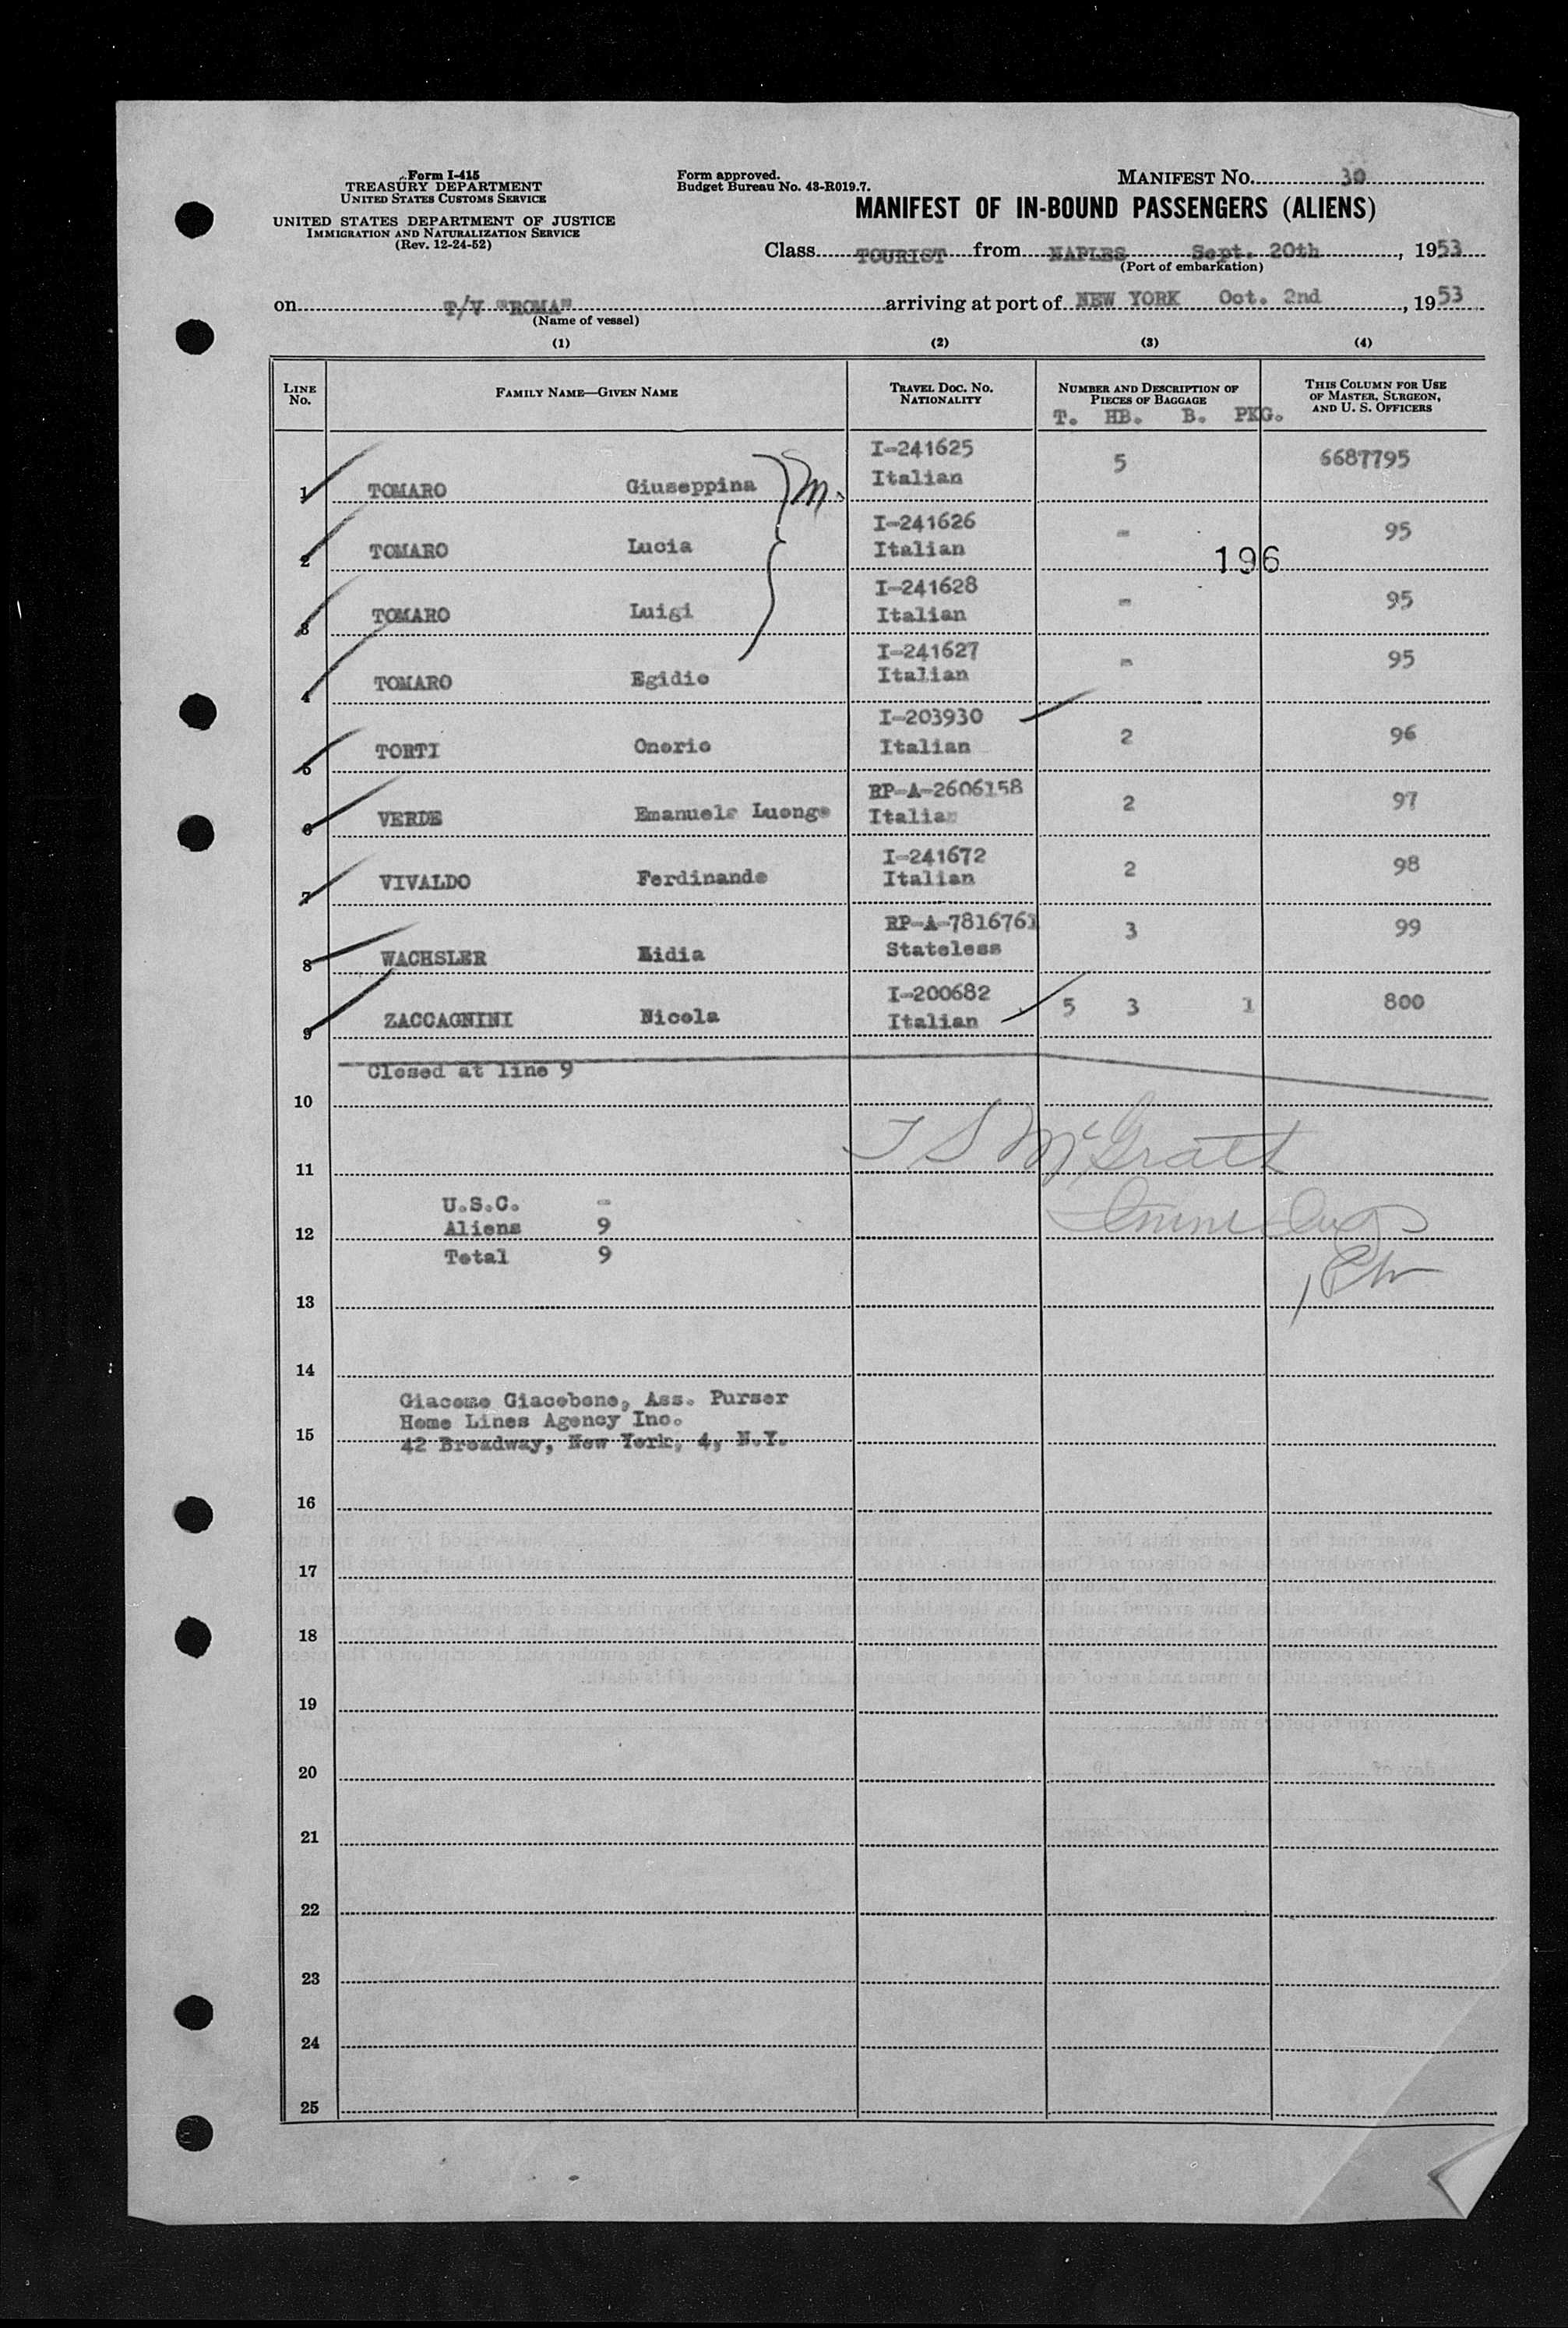 Form I-415
TREASURY DEPARTMENT
UNITED STATES CUSTOMS SERVICE
UNITED STATES DEPARTMENT OF JUSTICE
IMMIGRATION AND NATURALIZATION SERVICE
(Rev. 12-24-52)
Form approved.
Budget Bureau No. 43-R019.7.
MANIFEST NO. 30
MANIFEST OF IN-BOUND PASSENGERS (ALIENS)
Class TOURIST from NAPLES Sept. 20th, 1953
(Port of embarkation)
on T/V "ROMA" arriving at port of NEW YORK Oct. 2nd, 1953
(Name of vessel)
(1) (2) (3) (4)
LINE NO. FAMILY NAME—GIVEN NAME TRAVEL DOC. NO. NATIONALITY NUMBER AND DESCRIPTION OF PIECES OF BAGGAGE THIS COLUMN FOR USE OF MASTER, SURGEON, AND U. S. OFFICERS
T. HB. B. PKG.
1 TOMARO Giuseppina M. I-241625 Italian 5 6687795
2 TOMARO Lucia I-241626 Italian - 95
196
3 TOMARO Luigi I-241628 Italian - 95
4 TOMARO Egidio I-241627 Italian - 95
5 TORTI Onorio I-203930 Italian 2 96
6 VERDE Emanuela Luongo RP-A-2606158 Italian 2 97
7 VIVALDO Ferdinando I-241672 Italian 2 98
8 WACHSLER Lidia RP-A-7816761 Stateless 3 99
9 ZACCAGNINI Nicola I-200682 Italian 5 3 1 800
Closed at line 9
10
T S McGrath
11
U.S.C. -
Aliens 9
12
Total 9
13
14
Giacomo Giacobone, Ass. Purser
Home Lines Agency Inc.
15
42 Broadway, New York, 4, N.Y.
16
17
18
19
20
21
22
23
24
25